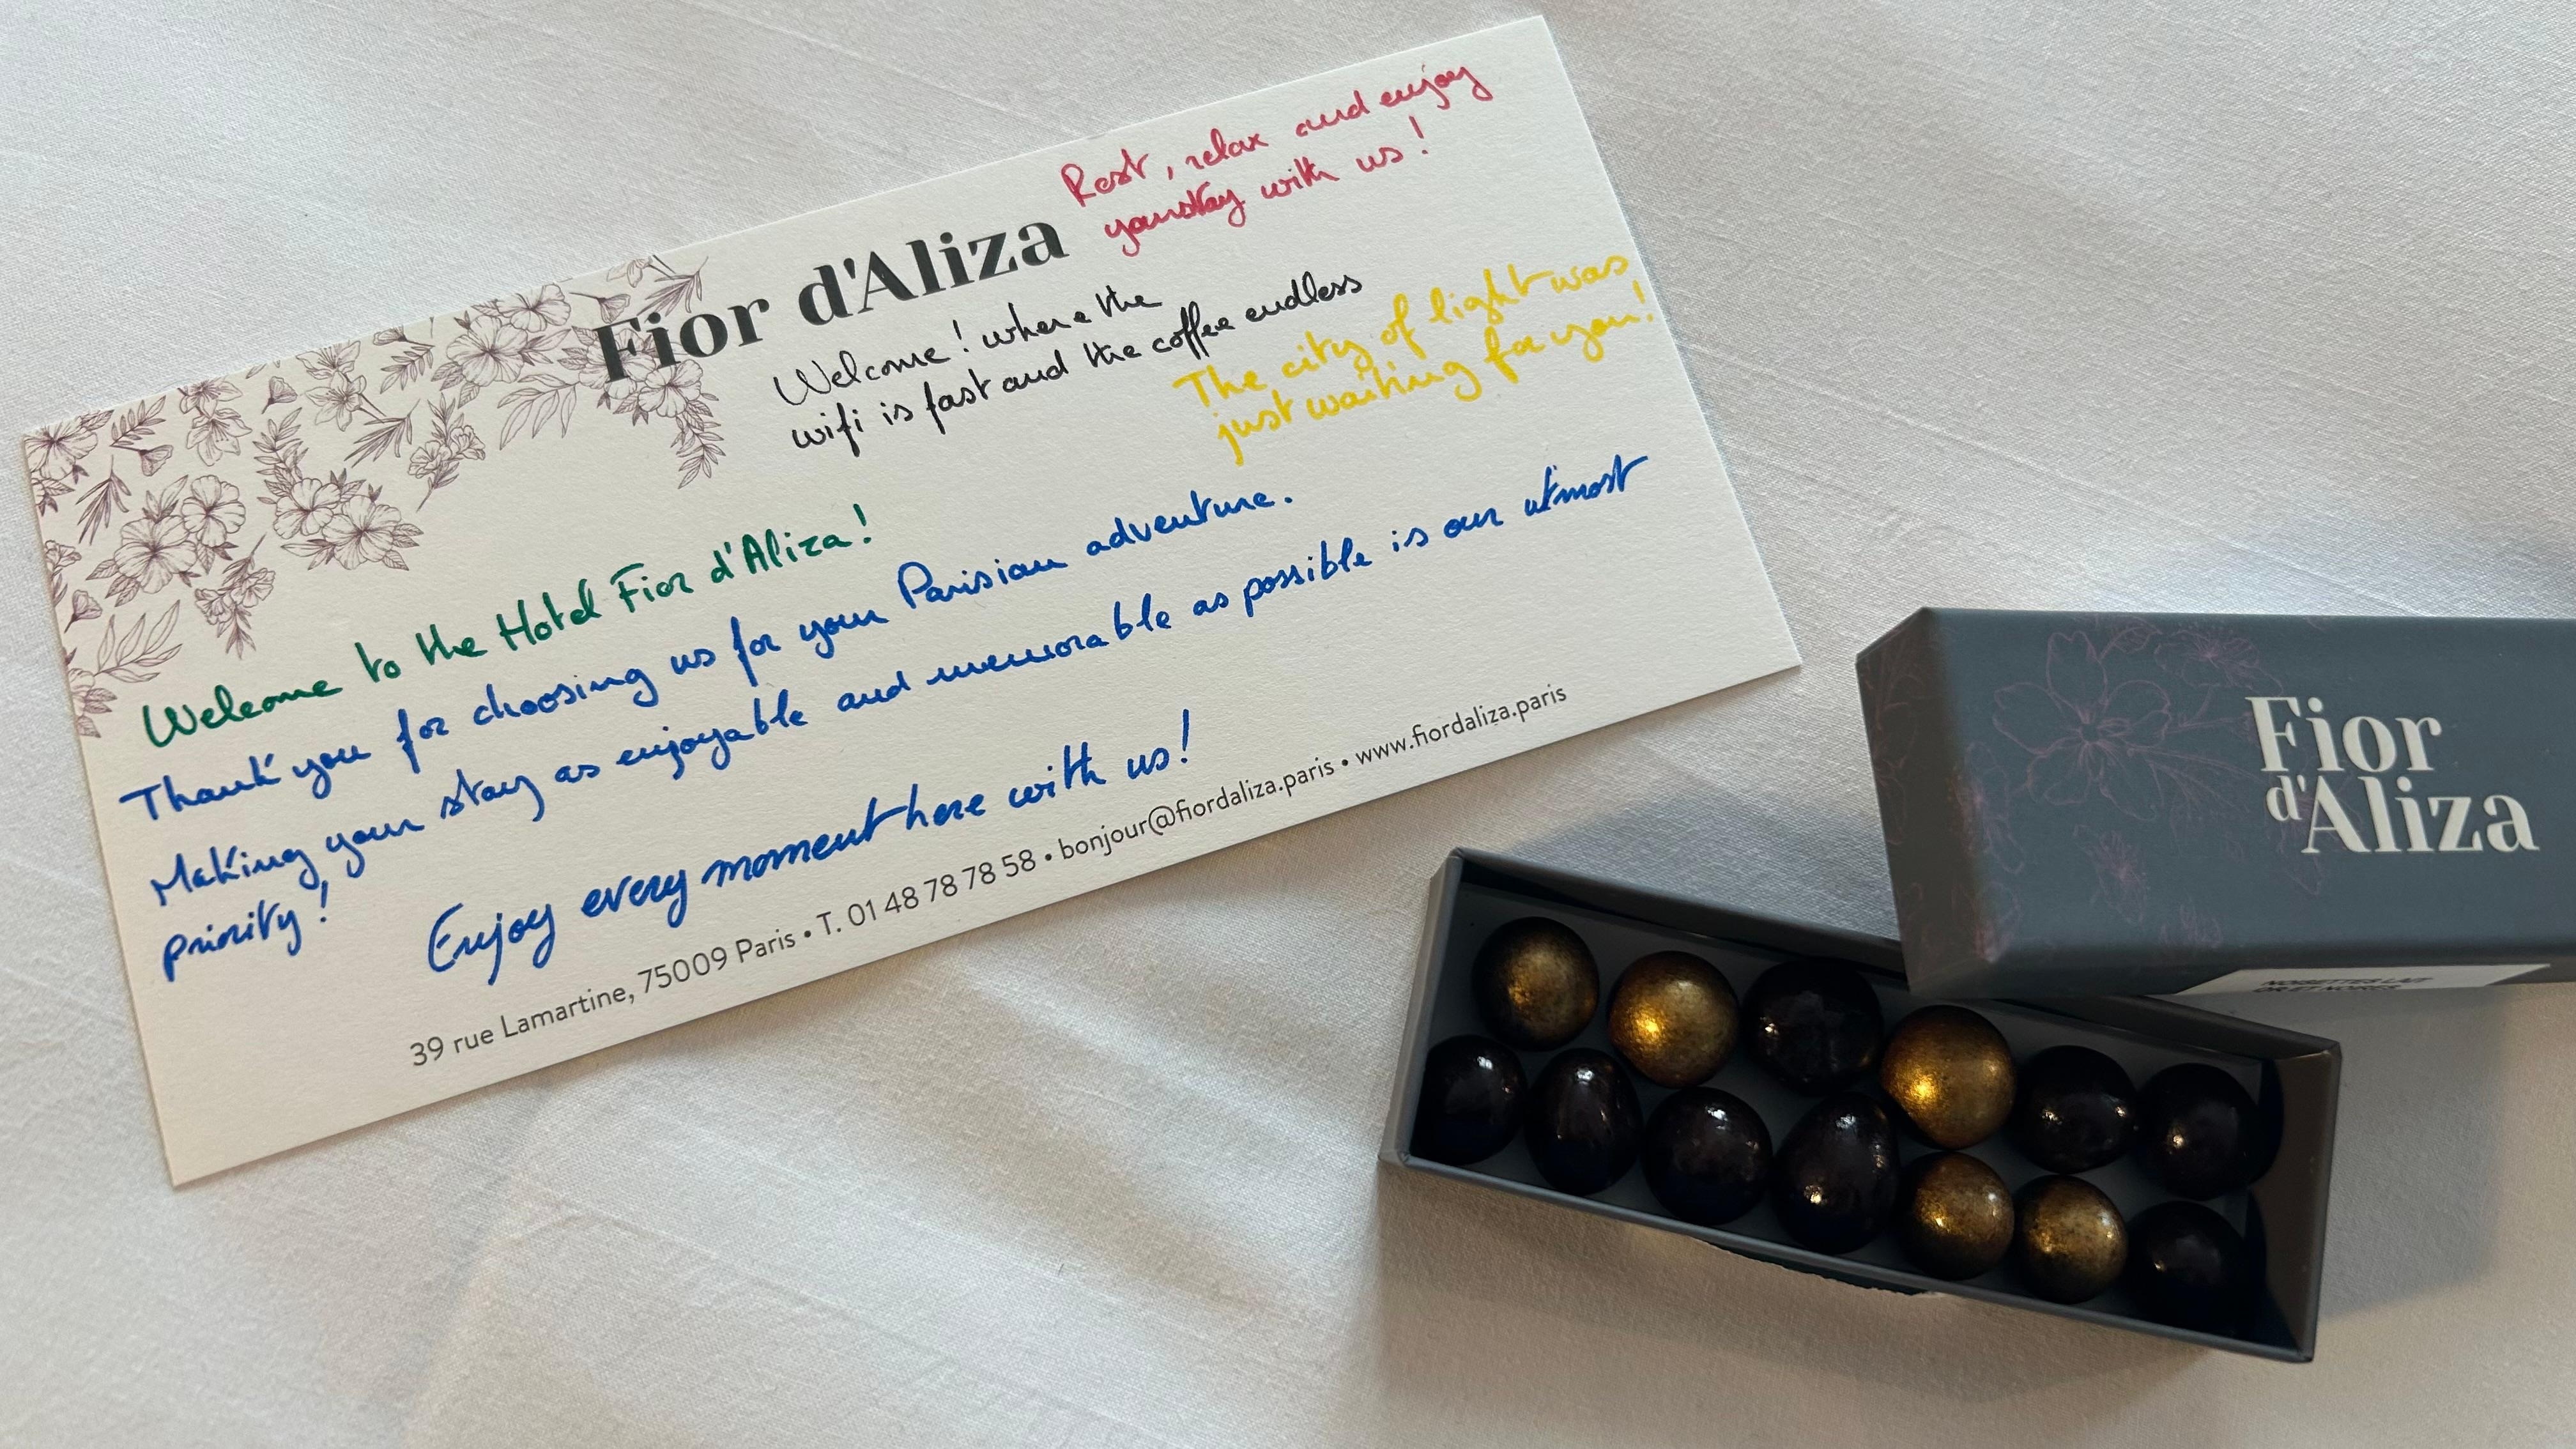 Rest, relax and enjoy
your stay with us!
Fior d'Aliza
Welcome! where the
wifi is fast and the coffee endless
The city of light was
just waiting for you!
Welcome to the Hotel Fior d'Aliza!
Thank you for choosing us for your Parisian adventure.
Making your stay as enjoyable and memorable as possible is our utmost
priority!
Enjoy every moment here with us!
39 rue Lamartine, 75009 Paris • T. 01 48 78 78 58 • bonjour@fiordaliza.paris • www.fiordaliza.paris
Fior
d'Aliza
NOISETTES